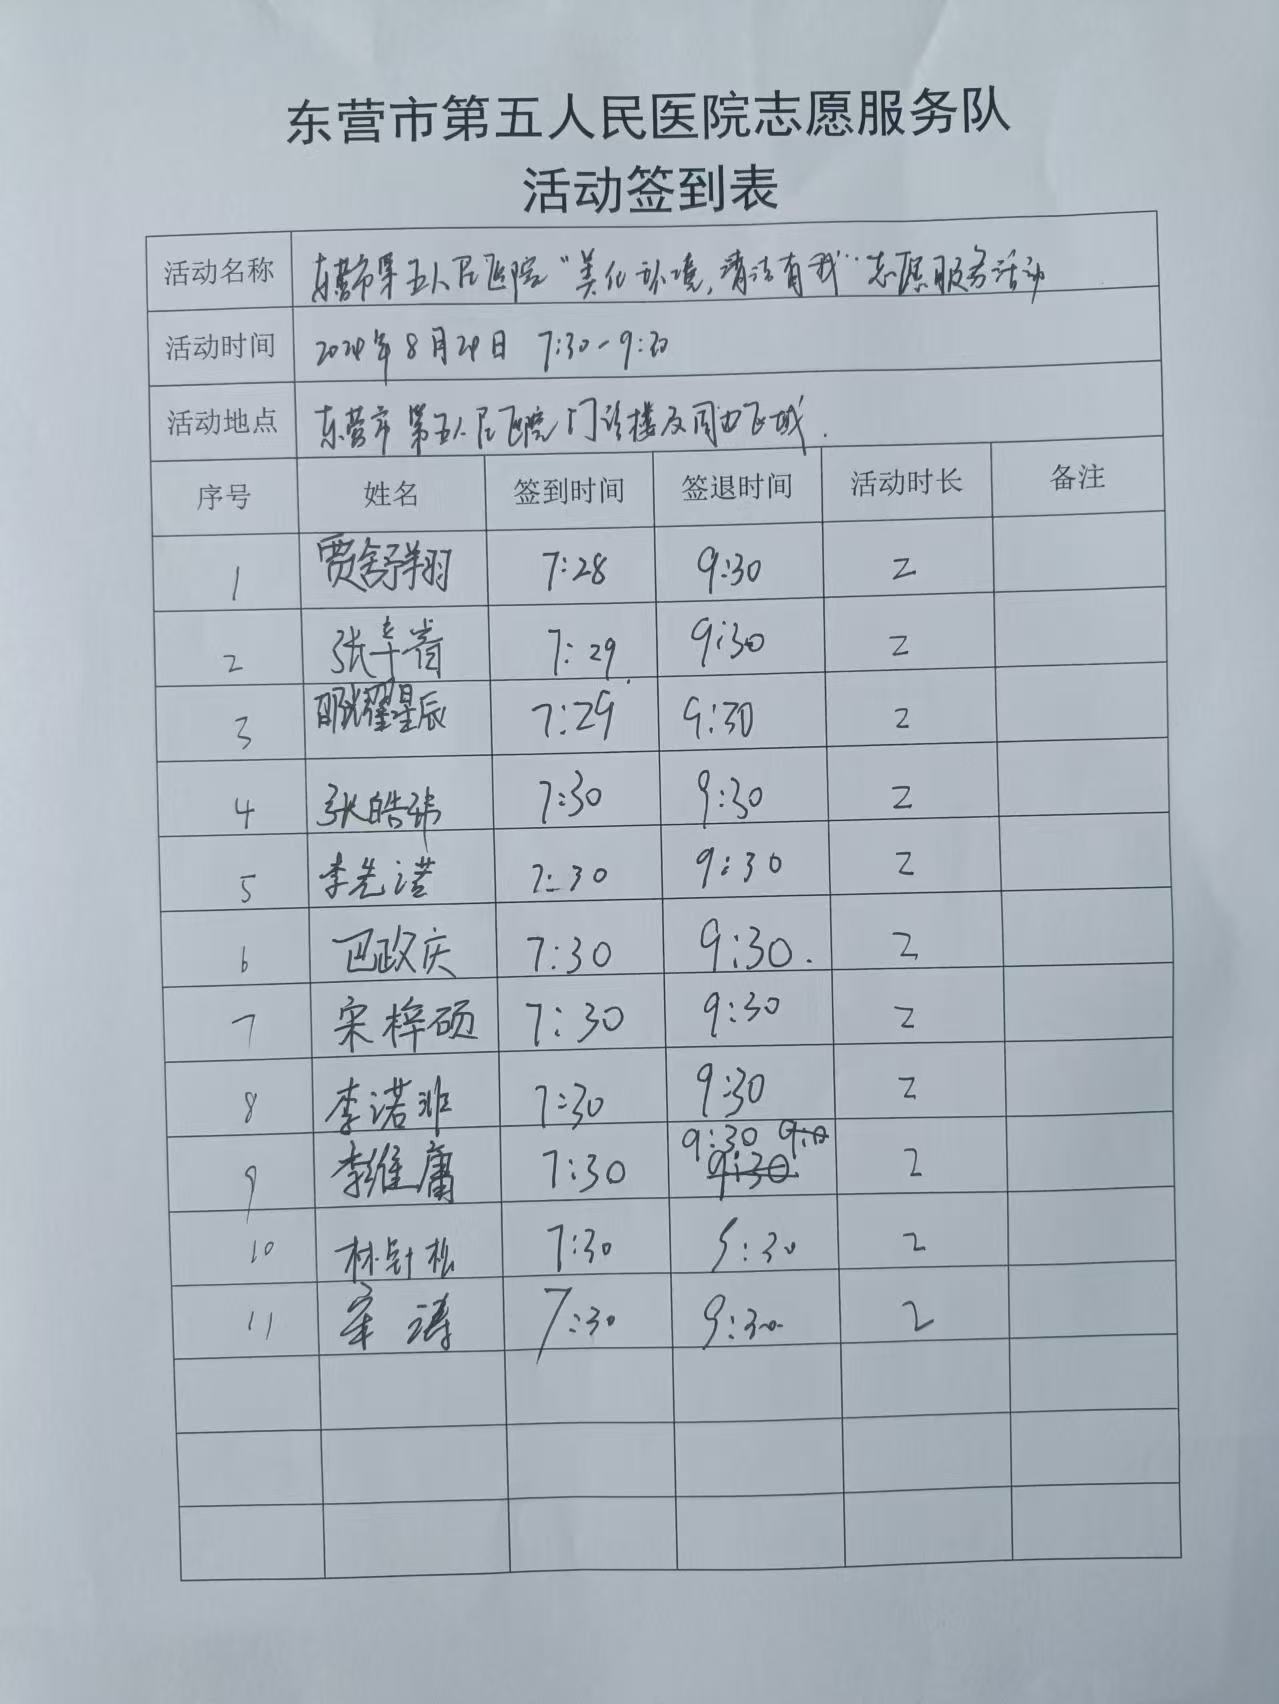 东营市第五人民医院志愿服务队
活动签到表
活动名称 东营市第五人民医院“美化环境,清洁有我”志愿服务活动
活动时间 2024年8月29日 7:30-9:30
活动地点 东营市第五人民医院门诊楼及周边区域.
序号 姓名 签到时间 签退时间 活动时长 备注
1 贾舒翔 7:28 9:30 2
2 张 7:29 9:30 2
3 耀星辰 7:29 9:30 2
4 张皓玮 7:30 9:30 2
5 李先 7:30 9:30 2
6 巴政庆 7:30 9:30. 2
7 宋梓硕 7:30 9:30 2
8 李诺非 7:30 9:30 2
9 李维庸 7:30 9:30 2
10 林 松 7:30 9:30 2
11 涛 7:30 9:30 2